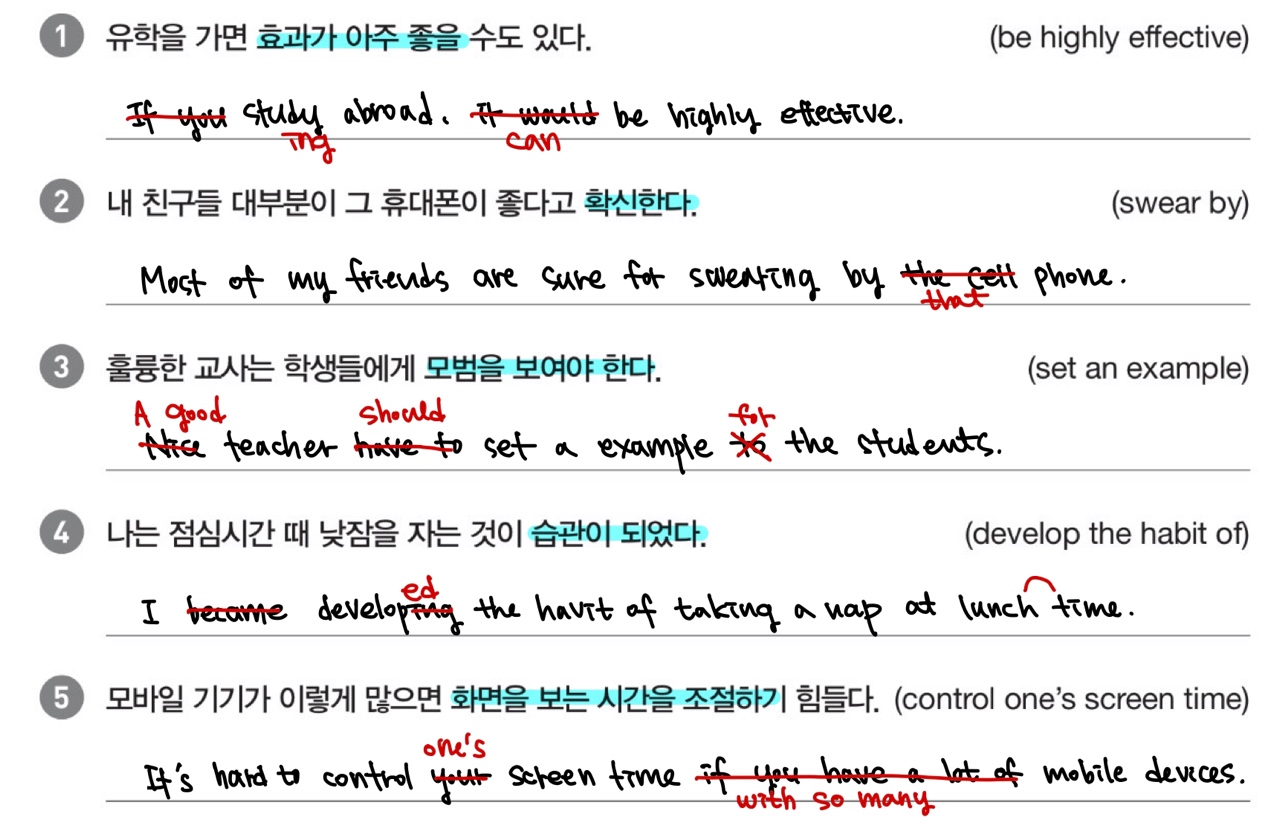 1 유학을 가면 효과가 아주 좋을 수도 있다. (be highly effective)
If you study abroad. It would be highly effective.
ing can
2 내 친구들 대부분이 그 휴대폰이 좋다고 확신한다. (swear by)
Most of my friends are sure for swearing by the cell phone.
that
3 훌륭한 교사는 학생들에게 모범을 보여야 한다. (set an example)
A good should for
Nice teacher have to set a example to the students.
4 나는 점심시간 때 낮잠을 자는 것이 습관이 되었다. (develop the habit of)
ed
I became developing the havit of taking a nap at lunch time.
5 모바일 기기가 이렇게 많으면 화면을 보는 시간을 조절하기 힘들다. (control one's screen time)
one's
It's hard to control your screen time if you have a lot of mobile devices.
with so many